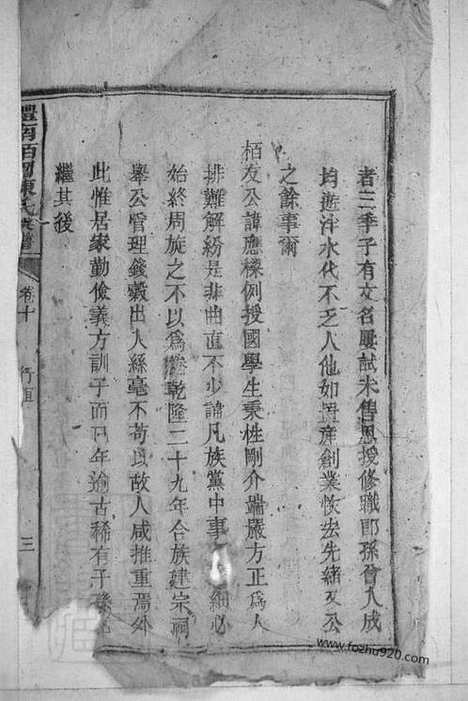 者三季子有文名屢試未售恩授修職郎孫曾入成
均遊泮水代不乏人他如增産創業恢宏先緒又公
之餘事爾
栢友公諱應樑例授國學生秉性剛介端嚴方正爲人
排難解紛是非曲直不少諱凡族黨中事 細心
始終周旋之不以爲 乾隆二十九年合族建宗祠
舉公管理錢穀出入絲毫不苟以故人咸推重焉外
此惟居家勤儉義方訓子而已年逾古稀有子
繼其後
卷十
行
三
www.fozhu920.com